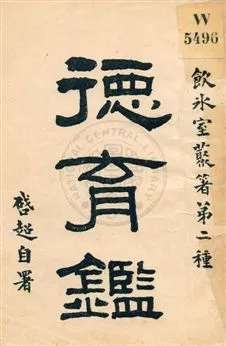 W
5496
飲冰室叢著第二種
德育鑑
啟超自署
NATIONAL CENTRAL LIBRARY